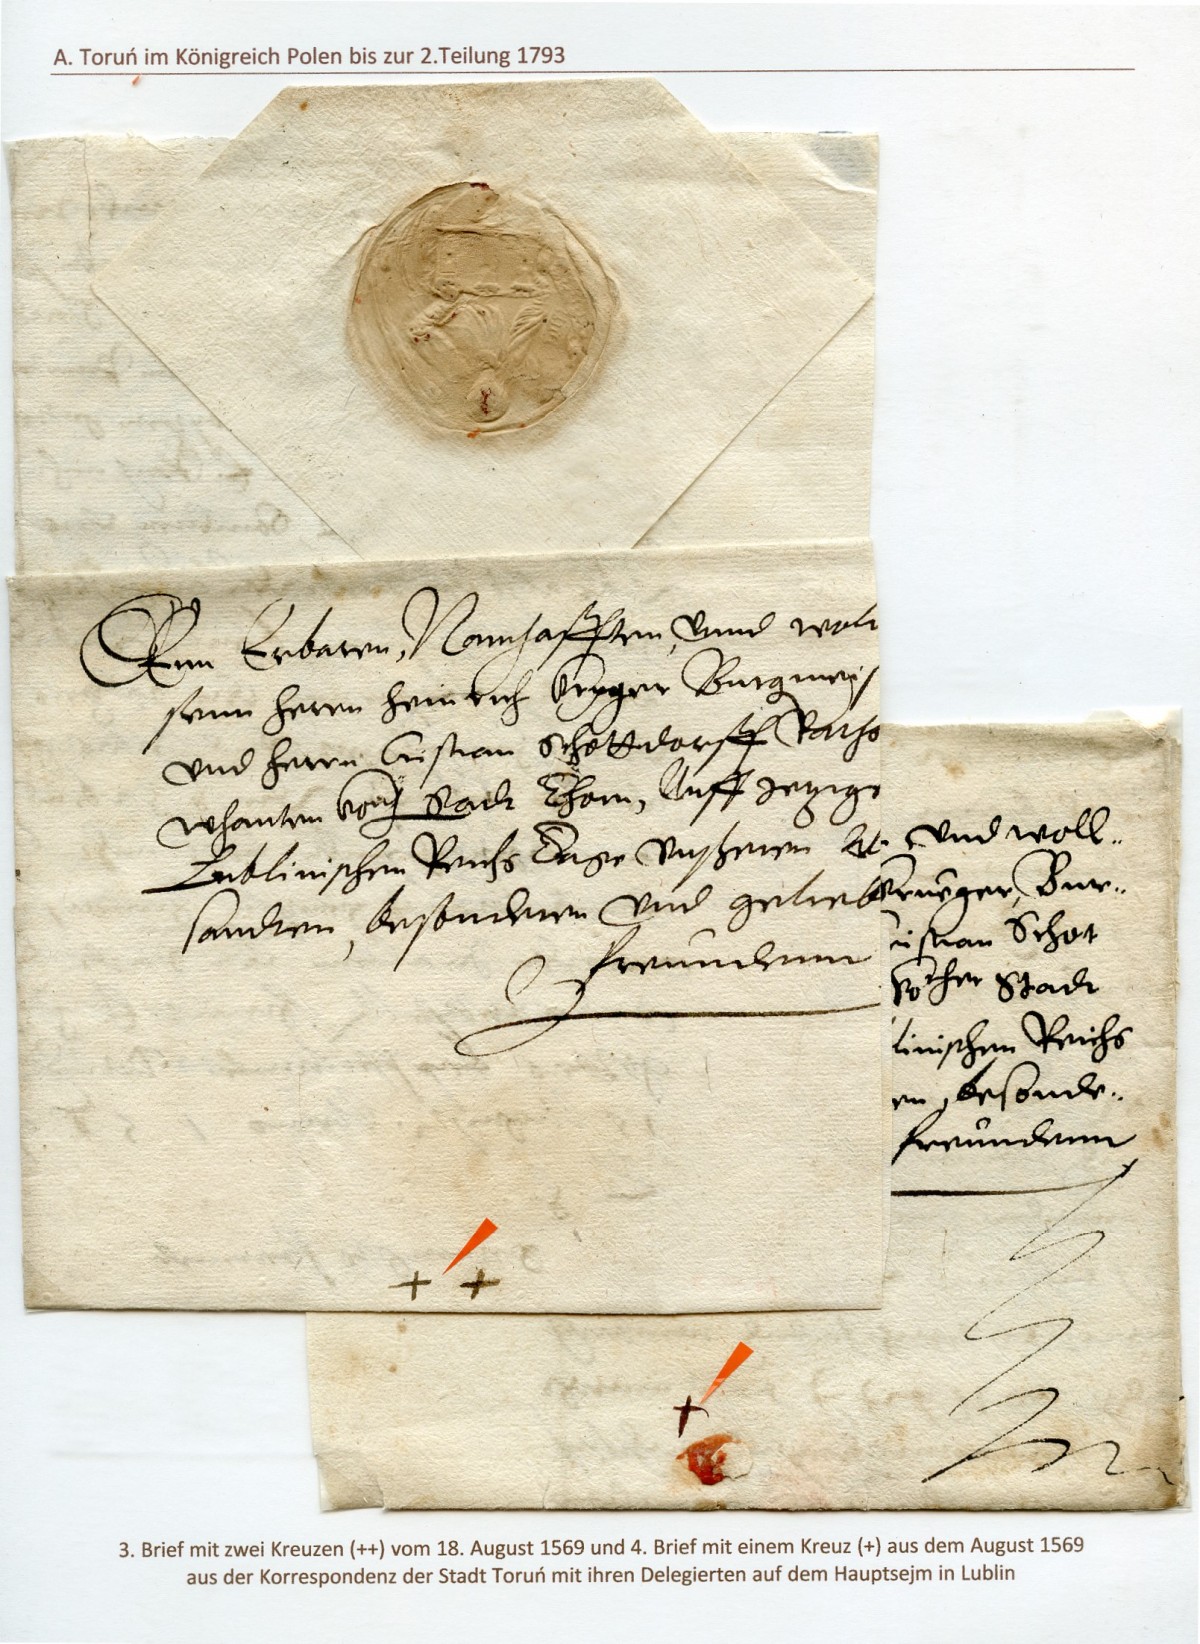 A. Toruń im Königreich Polen bis zur 2.Teilung 1793
Denn Erbaren, Namhafften, Vnnd wol
senn Herrn Heinrich Kruger Burgmeis
und Herrn Cristian Schottdorff Raths
Stadt Thorn, Auff Jetzige
Lublinischen Reichs Tage Vnseren
sandten, besonderen Vnd gelieb
freundenn
Vnd woll..
Krueger, Bur..
ristian Schot
Stadt
linischen Reichs
en, besonde..
freundenn
+ +
+
3. Brief mit zwei Kreuzen (++) vom 18. August 1569 und 4. Brief mit einem Kreuz (+) aus dem August 1569
aus der Korrespondenz der Stadt Toruń mit ihren Delegierten auf dem Hauptsejm in Lublin